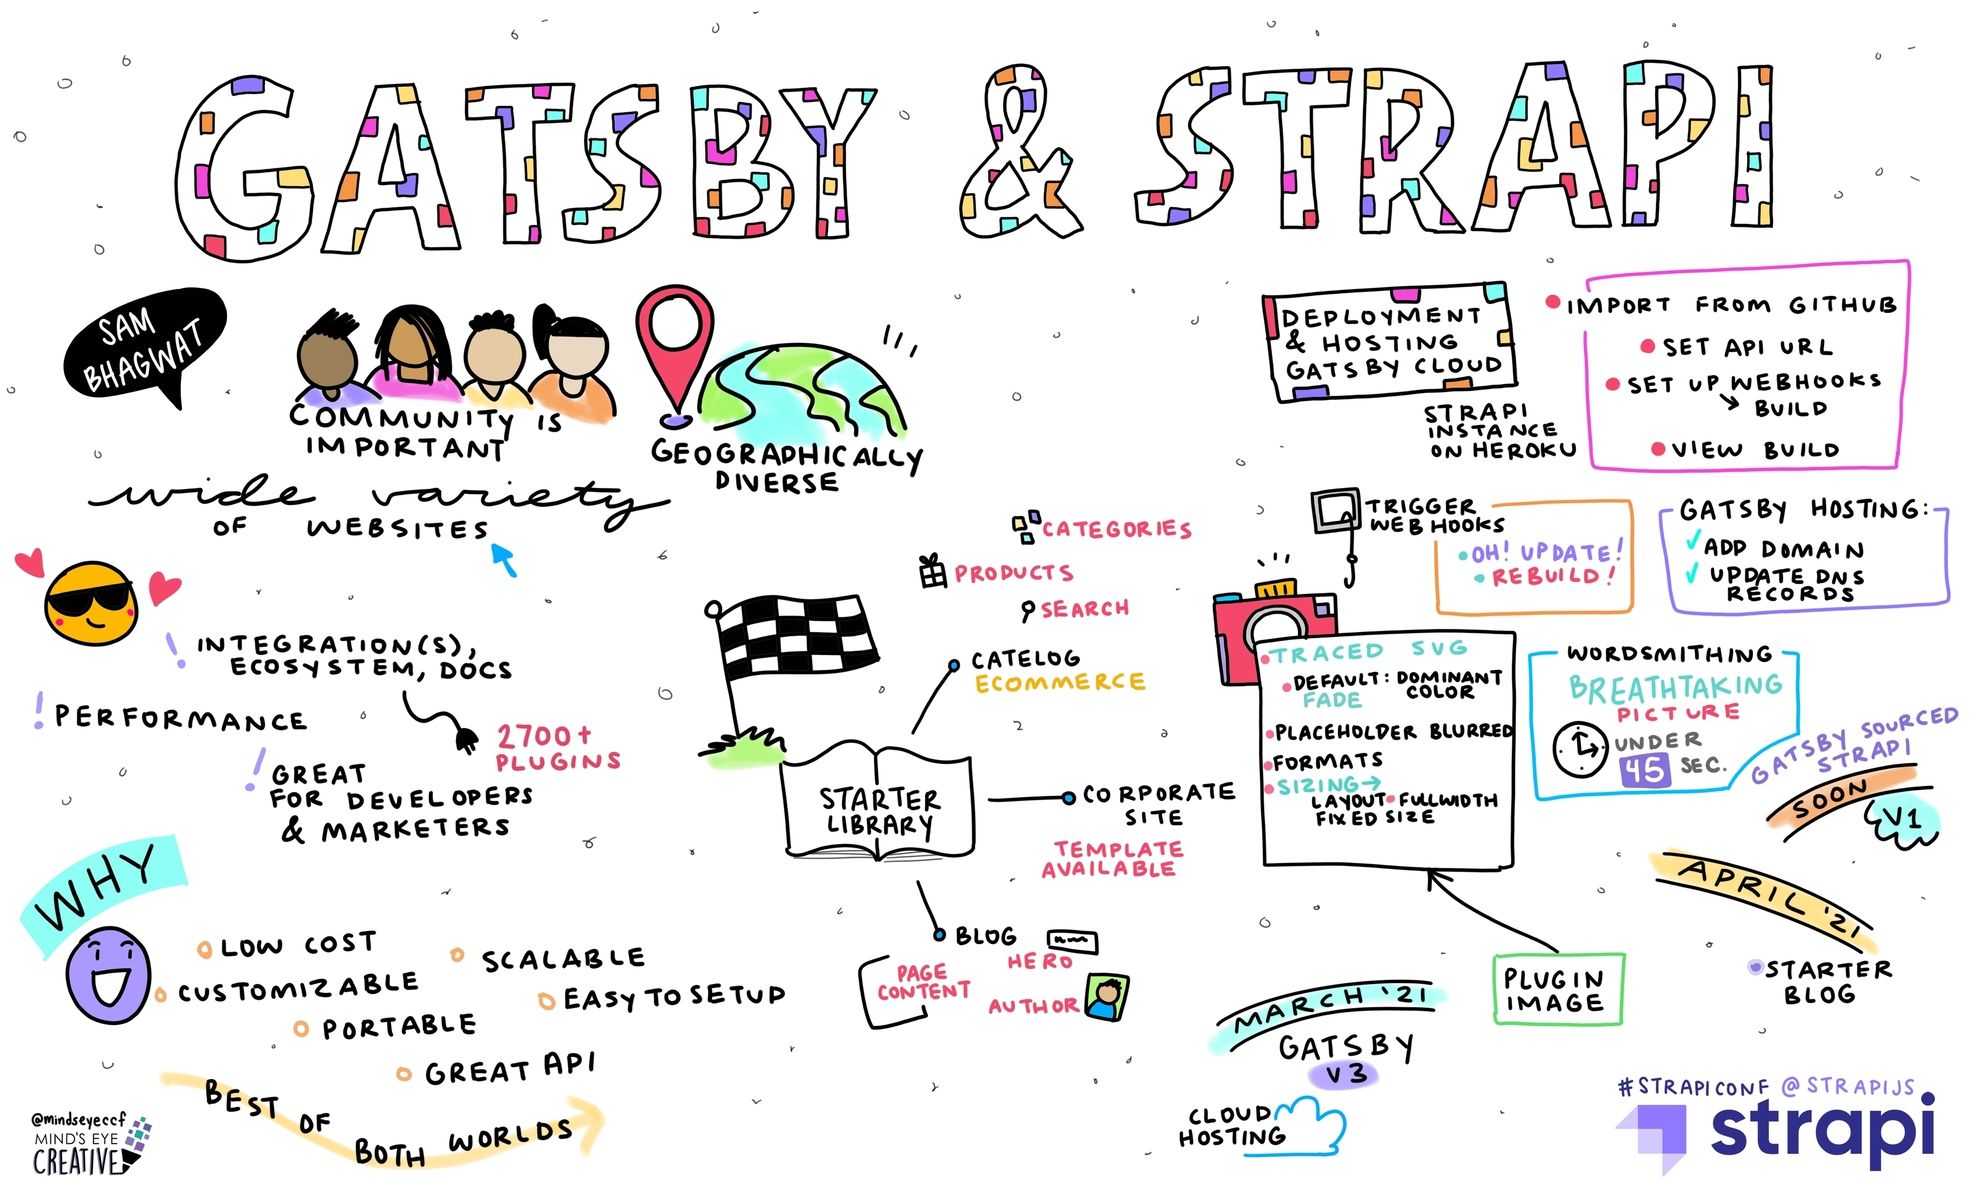 GATSBY & STRAPI
SAM
BHAGWAT
COMMUNITY IS
IMPORTANT
GEOGRAPHICALLY
DIVERSE
wide variety
OF WEBSITES
INTEGRATION(S),
ECOSYSTEM, DOCS
! PERFORMANCE
2700+
PLUGINS
! GREAT
FOR DEVELOPERS
& MARKETERS
WHY
LOW COST
CUSTOMIZABLE
PORTABLE
GREAT API
SCALABLE
EASY TO SETUP
BEST OF BOTH WORLDS
@mindseyeccf
MIND'S EYE
CREATIVE
CATEGORIES
PRODUCTS
SEARCH
CATELOG
ECOMMERCE
STARTER
LIBRARY
CORPORATE
SITE
TEMPLATE
AVAILABLE
BLOG
HERO
PAGE
CONTENT
AUTHOR
DEPLOYMENT
& HOSTING
GATSBY CLOUD
STRAPI
INSTANCE
ON HEROKU
IMPORT FROM GITHUB
SET API URL
SET UP WEBHOOKS
BUILD
VIEW BUILD
TRIGGER
WEBHOOKS
OH! UPDATE!
REBUILD!
GATSBY HOSTING:
ADD DOMAIN
UPDATE DNS
RECORDS
TRACED SVG
DEFAULT: DOMINANT
FADE COLOR
PLACEHOLDER BLURRED
FORMATS
SIZING→
LAYOUT • FULLWIDTH
FIXED SIZE
PLUGIN
IMAGE
WORDSMITHING
BREATHTAKING
PICTURE
UNDER
45 SEC.
GATSBY SOURCED
STRAPI
SOON
V1
APRIL '21
STARTER
BLOG
MARCH '21
GATSBY
V3
CLOUD
HOSTING
#STRAPICONF @STRAPIJS
strapi